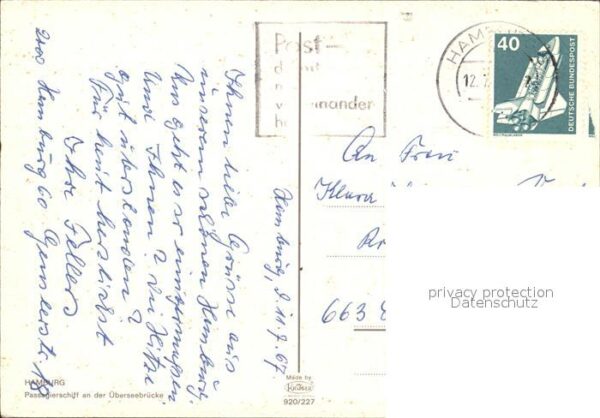 Post-
HAMBU
12.7
40
DEUTSCHE BUNDESPOST
nander
Hamburg, d. 11.7.67
Ihnen liebe Grüsse aus
unserem schönen Hamburg.
Uns geht es so einigermassen.
Und Ihnen? Die Hitze
gut überstanden?
Für heut herzlichst
Ihre Fellers
2000 Hamburg 60
An Frau
Klara
663
privacy protection
Datenschutz
HAMBURG
Passagierschiff an der Überseebrücke
Made by
KRÜGER
920/227